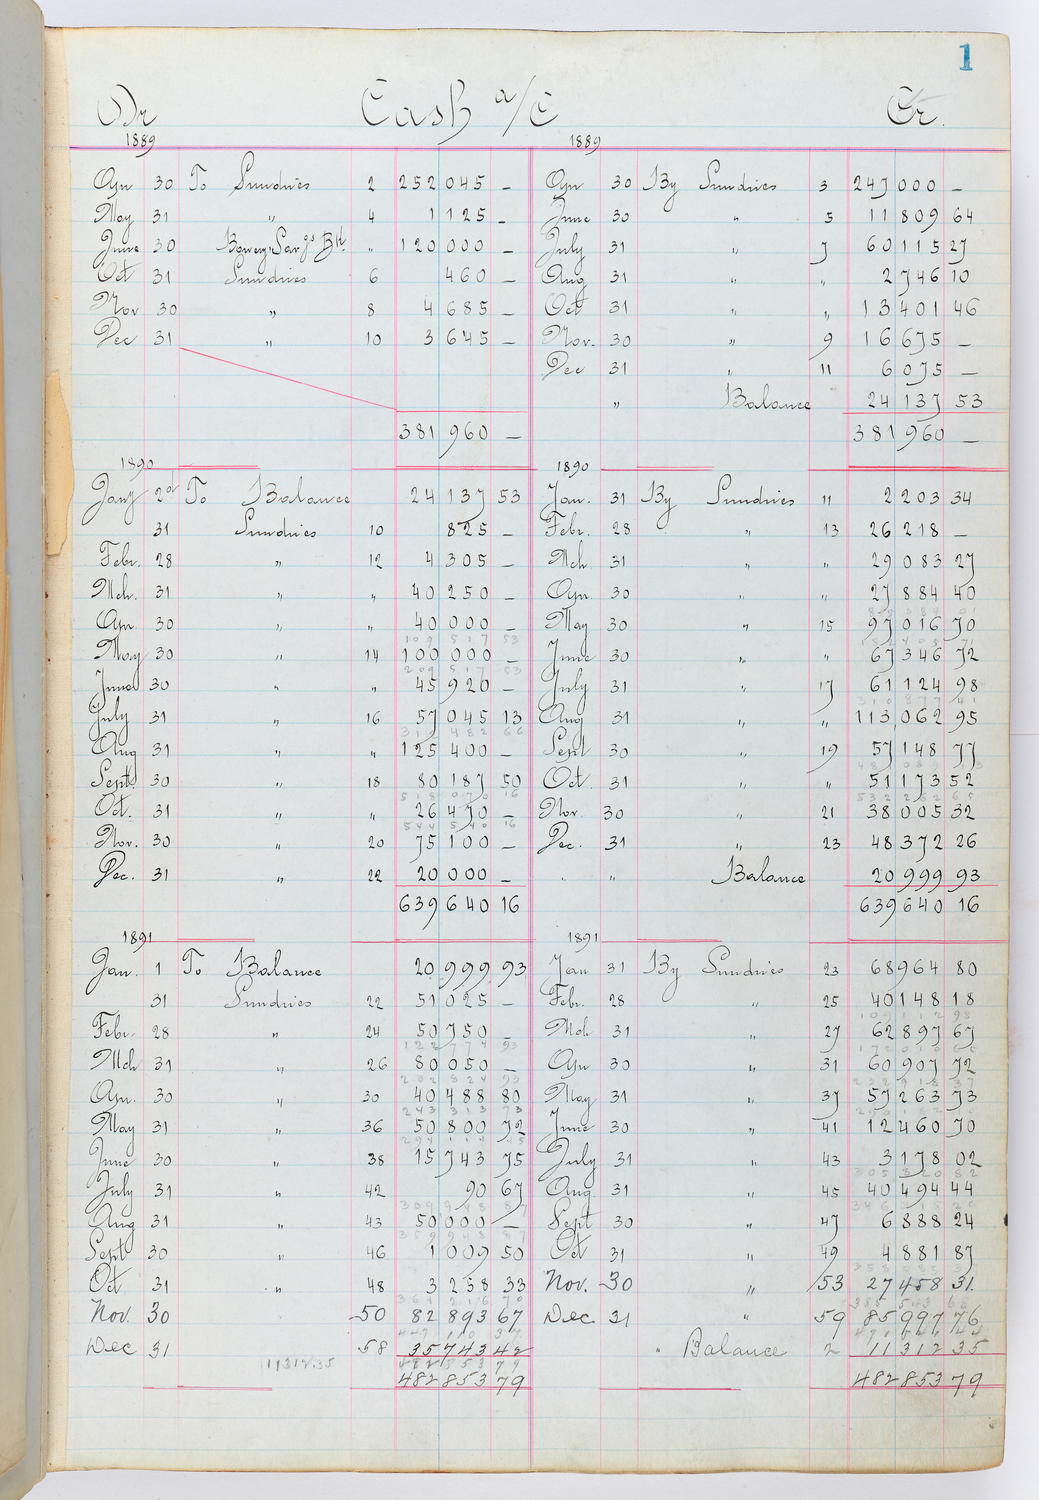 1
Dr Cash a/c Cr.
1889 1889
Apr 30 To Sundries 2 252 045 — Apr 30 By Sundries 3 247 000 —
May 31 " 4 1 125 — June 30 " 5 11 809 64
June 30 Bowery Savgs Bk " 120 000 — July 31 " 7 60 115 27
Oct 31 Sundries 6 460 — Aug 31 " " 2 746 10
Nov 30 " 8 4 685 — Oct 31 " " 13 401 46
Dec 31 " 10 3 645 — Nov. 30 " 9 16 675 —
Dec 31 " 11 6 075 —
" Balance 24 137 53
381 960 — 381 960 —
1890 1890
Jany 2d To Balance 24 137 53 Jan. 31 By Sundries 11 2 203 34
31 Sundries 10 825 — Febr. 28 " 13 26 218 —
Febr. 28 " 12 4 305 — Mch 31 " " 29 083 27
Mch. 31 " " 40 250 — Apr. 30 " " 27 884 40
85 389 01
Apr. 30 " " 40 000 — May 30 " 15 97 016 70
109 517 53 182 405 71
May 30 " 14 100 000 — June 30 " " 67 346 72
209 517 53
June 30 " " 45 920 — July 31 " 17 61 124 98
310 877 41
July 31 " 16 57 045 13 Aug 31 " " 113 062 95
312 482 66
Aug 31 " " 125 400 — Sept 30 " 19 57 148 77
481 089 13
Sept. 30 " 18 80 187 50 Oct. 31 " " 51 173 52
518 070 16 532 262 65
Oct. 31 " " 26 470 — Nov. 30 " 21 38 005 32
544 540 16
Nov. 30 " 20 75 100 — Dec. 31 " 23 48 372 26
Dec. 31 " 22 20 000 — " " Balance 20 999 93
639 640 16 639 640 16
1891 1891
Jan. 1 To Balance 20 999 93 Jan 31 By Sundries 23 68 964 80
31 Sundries 22 51 025 — Febr. 28 " 25 40 148 18
109 112 98
Febr. 28 " 24 50 750 — Mch 31 " 27 62 897 67
122 774 93 172 010 65
Mch 31 " 26 80 050 — Apr 30 " 31 60 907 72
202 824 93 232 918 37
Apr. 30 " 30 40 488 80 May 31 " 37 57 263 73
243 313 73 290 182 10
May 31 " 36 50 800 72 June 30 " 41 12 460 70
294 114 45
June 30 " 38 15 743 75 July 31 " 43 3 178 02
305 820 82
July 31 " 42 90 67 Aug 31 " 45 40 494 44
309 948 87 346 315 26
Aug 31 " 43 50 000 — Sept 30 " 47 6 888 24
359 948 87
Sept 30 " 46 1 009 50 Oct 31 " 49 4 881 87
358 085 37
Oct 31 " 48 3 258 33 Nov. 30 " 53 27 458 31
364 216 70 385 543 68
Nov. 30 " 50 82 893 67 Dec 31 " 59 85 997 76
447 110 37 471 541 44
Dec 31 58 35 743 42 " Balance 2 11 312 35
11312.35 482 853 79
482 853 79 482 853 79